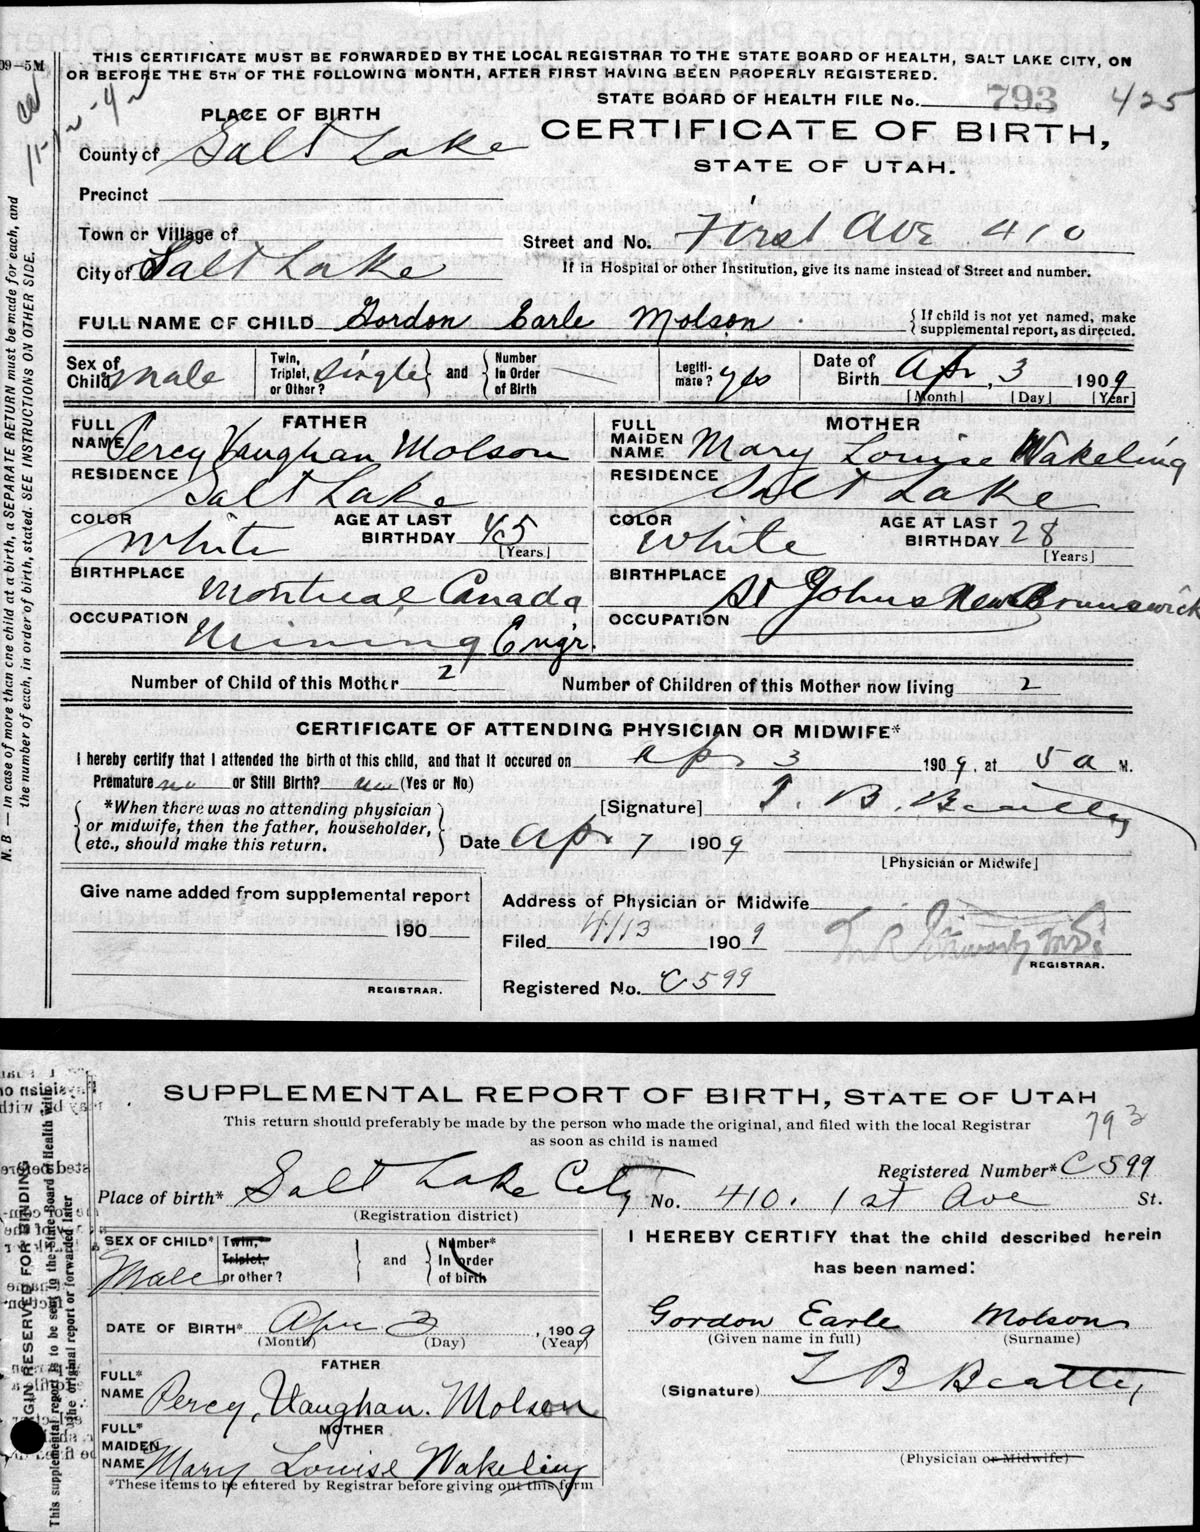 09—5M
THIS CERTIFICATE MUST BE FORWARDED BY THE LOCAL REGISTRAR TO THE STATE BOARD OF HEALTH, SALT LAKE CITY, ON
OR BEFORE THE 5TH OF THE FOLLOWING MONTH, AFTER FIRST HAVING BEEN PROPERLY REGISTERED.
STATE BOARD OF HEALTH FILE No. 793 425
PLACE OF BIRTH
CERTIFICATE OF BIRTH,
County of Salt Lake
STATE OF UTAH.
Precinct
Town or Village of
Street and No. First Ave 410
City of Salt Lake
If in Hospital or other Institution, give its name instead of Street and number.
FULL NAME OF CHILD Gordon Earle Molson
{ If child is not yet named, make
supplemental report, as directed.
Sex of
Child male
Twin,
Triplet, single } and {
or Other?
Number
In Order
of Birth
Legiti-
mate? yes
Date of
Birth Apr, 3 1909
[Month] [Day] [Year]
FATHER
FULL
NAME Percy Vaughan Molson
RESIDENCE
Salt Lake
COLOR
White
AGE AT LAST
BIRTHDAY 45
[Years]
BIRTHPLACE
Montreal, Canada
OCCUPATION
Mining Engr.
MOTHER
FULL
MAIDEN
NAME Mary Louise Wakeling
RESIDENCE
Salt Lake
COLOR
White
AGE AT LAST
BIRTHDAY 28
[Years]
BIRTHPLACE
St Johns New Brunswick
OCCUPATION
Number of Child of this Mother 2
Number of Children of this Mother now living 2
CERTIFICATE OF ATTENDING PHYSICIAN OR MIDWIFE*
I hereby certify that I attended the birth of this child, and that it occured on Apr 3 1909, at 5 a M.
Premature no or Still Birth? (Yes or No)
{ *When there was no attending physician
or midwife, then the father, householder,
etc., should make this return. }
[Signature] T. B. Beatty
Date Apr. 7 1909
[Physician or Midwife]
Give name added from supplemental report
190
REGISTRAR.
Address of Physician or Midwife
Filed 4/13 1909
REGISTRAR.
Registered No. C599
N. B — In case of more than one child at a birth, a SEPARATE RETURN must be made for each, and
the number of each, in order of birth, stated. SEE INSTRUCTIONS ON OTHER SIDE.
SUPPLEMENTAL REPORT OF BIRTH, STATE OF UTAH
This return should preferably be made by the person who made the original, and filed with the local Registrar
as soon as child is named
793
Registered Number* C599
Place of birth* Salt Lake City No. 410. 1st Ave St.
(Registration district)
SEX OF CHILD*
Male
Twin,*
Triplet,
or other?
} and {
Number*
In order
of birth
DATE OF BIRTH* Apr 3, 1909
(Month) (Day) (Year)
FATHER
FULL*
NAME Percy, Vaughan. Molson
MOTHER
FULL*
MAIDEN
NAME Mary Louise Wakeling
*These items to be entered by Registrar before giving out this form
I HEREBY CERTIFY that the child described herein
has been named:
Gordon Earle Molson
(Given name in full) (Surname)
(Signature) T B Beatty
(Physician or Midwife)
GIN RESERVED FOR BINDING
This supplemental report is to be sent to the State Board of Health with
the original report or forwarded later